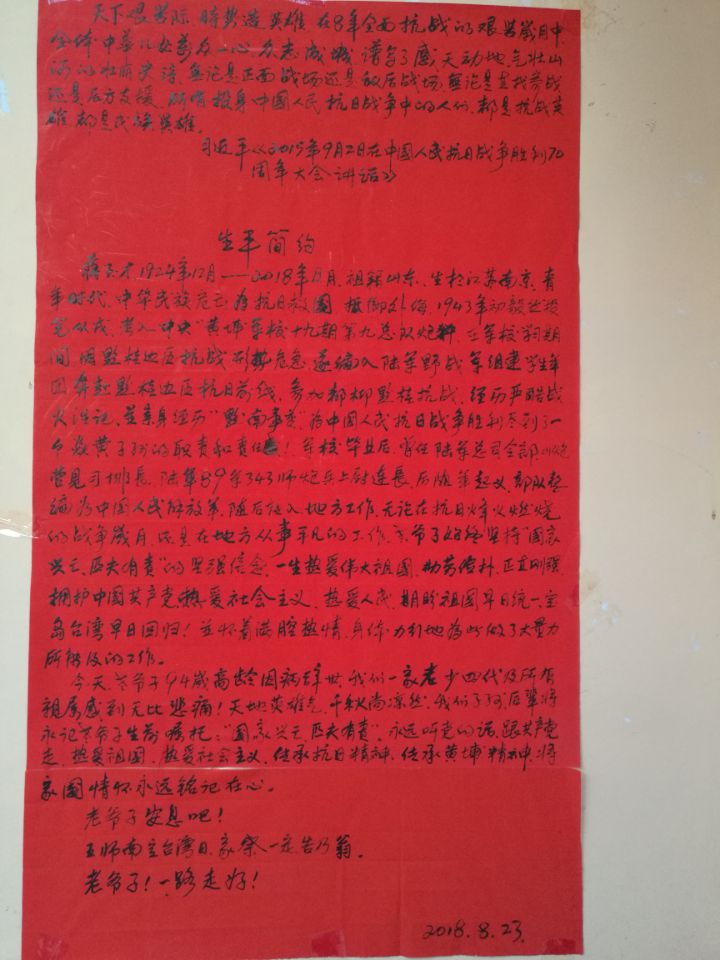 天下艰难际, 时势造英雄. 在8年全面抗战的艰苦岁月中,
全体中华儿女万众一心众志成城, 谱写了感天动地气壮山
河的壮丽史诗. 无论是正面战场还是敌后战场, 无论是直接参战
还是后方支援. 所有投身中国人民抗日战争中的人们, 都是抗战英
雄都是民族英雄.
习近平《2015年9月2日在中国人民抗日战争胜利70
周年大会讲话》
生平简约
1924年12月——2018年8月, 祖籍山东, 生于江苏南京, 青
年时代, 中华民族危亡, 为抗日救国 抵御外侮, 1943年初毅然投
笔从戎, 考入中央"黄埔军校"十九期第九总队炮科, 在军校学习期
间, 因黔桂边区抗战形势危急, 遂编入陆军野战军组建学生军
团奔赴黔桂边区抗日前线, 参加都柳黔桂抗战, 经历严酷战
火洗记, 并亲身经历"黔南事变", 为中国人民抗日战争胜利尽到了一
个炎黄子孙的职责和责任! 军校毕业后, 曾任陆军总司令部
营见习排长, 陆军89军343师炮兵上尉连长, 后随军起义, 部队整
编为中国人民解放军, 随后征入地方工作, 无论在抗日烽火燃烧
的战争岁月, 还是在地方从事平凡的工作, 老爷子始终坚持"国家
兴亡, 匹夫有责"的坚强信念. 一生热爱伟大祖国, 勤劳俭朴, 正直刚强.
拥护中国共产党, 热爱社会主义, 热爱人民, 期盼祖国早日统一, 宝
岛台湾早日回归! 并怀着满腔热情, 身体力行地为此做了大量力
所能及的工作.
今天, 老爷子94岁高龄因病辞世, 我们一家老少四代及所有
亲属感到无比悲痛! 天地英雄气, 千秋尚凛然. 我们子孙后辈将
永记老爷子生前嘱托: "国家兴亡, 匹夫有责". 永远听党的话, 跟共产党
走, 热爱祖国, 热爱社会主义, 传承抗日精神, 传承黄埔精神, 将
家国情怀永远铭记在心.
老爷子安息吧!
王师南定台湾日, 家祭一定告乃翁.
老爷子! 一路走好!
2018.8.23.